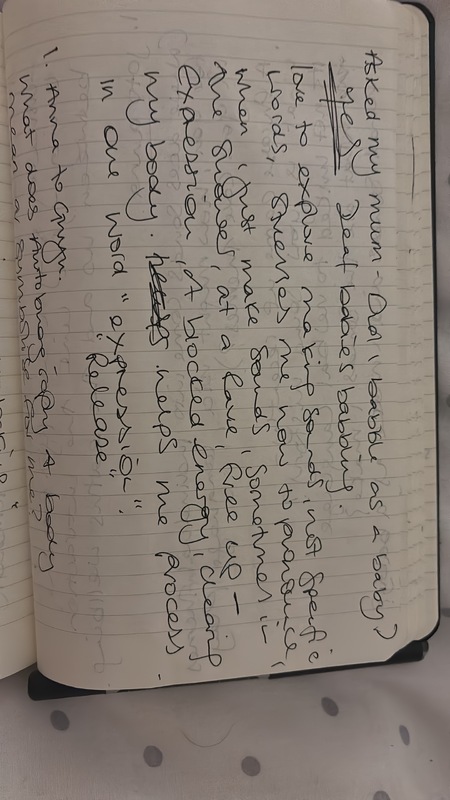 Asked my mum - Did I babble as a baby?
Yes Deaf babies babbling.
love to explore making sounds, not specific
words, me how to pronounce,
when I just make sounds, sometimes in
the at a rave, free up -
expression, A blocked energy, clearing
my body. helps me process
in one word "expression".
"Release"
1. Anna to
What does A body
mean a for me?